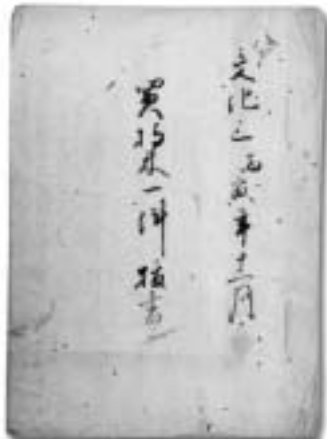 文化三丙寅年十二月
買持米一件 扣書